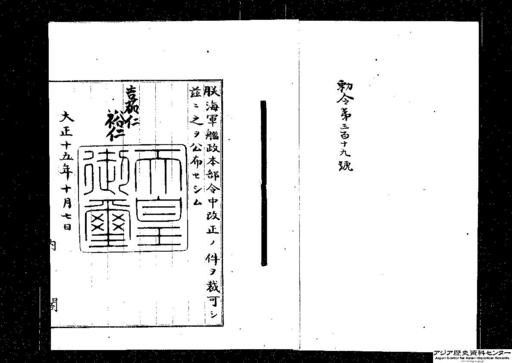 勅令第三百十九號
朕海軍艦政本部令中改正ノ件ヲ裁可シ
茲ニ之ヲ公布セシム
嘉仁
裕仁
天皇
御璽
大正十五年十月七日
内閣
アジア歴史資料センター
Japan Center for Asian Historical Records